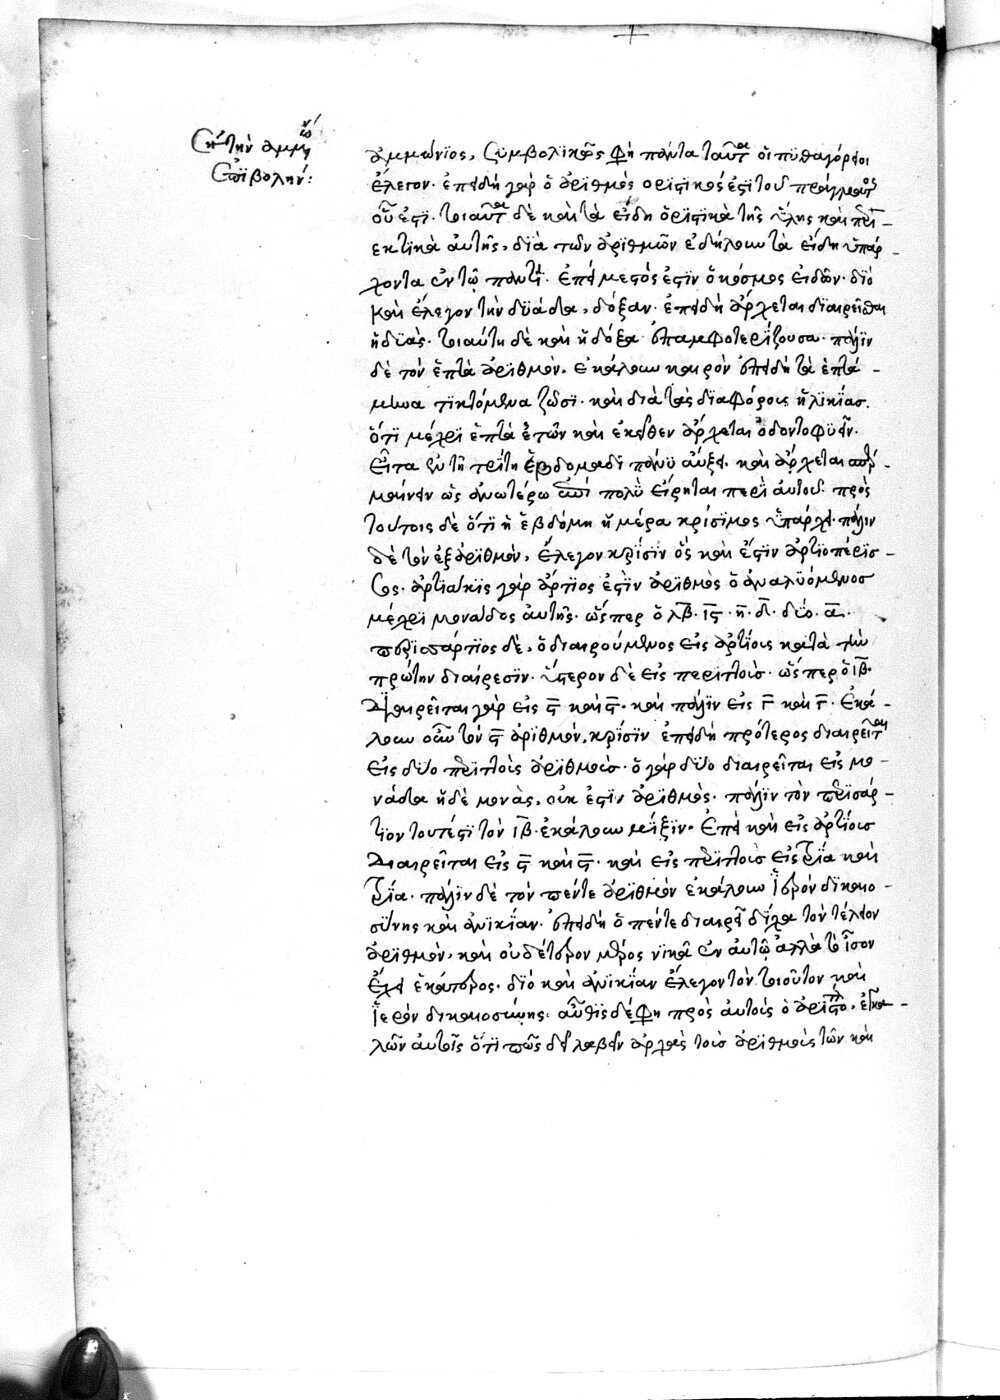 ση τὴν ἀμμωνίου
ἐπιβολήν:
ἀμμώνιος, συμβολικῶς φὴ πάντα ταῦτα οἱ πϋθαγόρειοι
ἔλεγον· ἐπειδὴ γὰρ ὁ ἀρϊθμὸς ὁριστικός ἐστι τοῦ πράγματος
οὗ ἐστι· τοιαῦτα δὲ καὶ τὰ εἴδη ὁρϊστικὰ τῆς ὕλης καὶ περι-
εκτικὰ αὐτῆς, δϊὰ τῶν ἀρϊθμῶν ἐδήλουν τὰ εἴδη ὑπάρ-
χοντα ἐν τῷ παντί· ἐπεὶ μεστός ἐστϊν ὁ κόσμος εἰδῶν· διὸ
καὶ ἔλεγον τὴν δυάδα, δόξαν· ἐπειδὴ ἄρχεται διαιρεῖσθαι
ἡ δϋάς· τοιαύτη δὲ καὶ ἡ δόξα ἐπαμφοτερίζουσα· πάλϊν
δὲ τὸν ἑπτὰ ἀρϊθμὸν, ἐκάλουν καιρὸν ἐπειδὴ τὰ ἑπτά-
μηνα τϊκτόμενα ζῶσϊ· καὶ διὰ τὰς δϊαφόρους ἡλϊκίας.
ὅτϊ μέχρϊ ἑπτὰ ἐτῶν καὶ ἐκεῖθεν ἄρχεται ὀδοντοφϋεῖν·
εἶτα ἐν τῇ τρίτῃ ἑβδομάδϊ πάνϋ αὔξει· καὶ ἄρχεται σπερ-
μαίνειν ὡς ἀνωτέρω ἐπὶ πολὺ εἴρηται περὶ αὐτοῦ· πρὸς
τούτοις δὲ ὅτϊ ἡ ἑβδόμη ἡμέρα κρίσϊμος ὑπάρχει· πάλιν
δὲ τὸν ἓξ ἀρϊθμὸν, ἔλεγον κρίσϊν ὅς καὶ ἔστϊν ἀρτϊοπέρισ-
σος· ἀρτϊάκϊς γὰρ ἄρτϊος ἐστὶν ἀρϊθμὸς ὁ ἀναλϋόμενος
μέχρϊ μονάδος αὐτῆς· ὥσπερ ὁ λβ· ις· η· δ· δύο· α·
περισσάρτϊος δὲ, ὁ διαιρούμενος εἰς ἀρτίους κατὰ τὴν
πρώτην διαίρεσϊν· ὕστερον δὲ εἰς περιττούς· ὥσπερ ὁ ιβ·
διαιρεῖται γὰρ εἰς ς καὶ ς· καὶ πάλϊν εἰς γ καὶ γ· ἐκά-
λουν οὖν τὸν ς ἀρϊθμὸν, κρίσϊν ἐπειδὴ πρότερος διαιρεῖται
εἰς δύο περϊττοὺς ἀρϊθμούς· ὁ γὰρ δύο διαιρεῖται εἰς μο-
νάδα ἡ δὲ μονὰς, οὐκ ἔστϊν ἀρϊθμός· πάλϊν τὸν περισσάρ-
τϊον τουτέστϊ τὸν ιβ· ἐκάλουν μῖξϊν· ἐπεὶ καὶ εἰς ἀρτίους
διαιρεῖται εἰς ς καὶ ς· καὶ εἰς περϊττοὺς εἰς τρία καὶ
τρία· πάλϊν δὲ τὸν πέντε ἀρϊθμὸν ἐκάλουν ἱερὸν δϊκαιο-
σύνης καὶ ἀνϊκίαν· ἐπειδὴ ὁ πέντε διαιρεῖ δίχα τὸν τέλειον
ἀρϊθμὸν, καὶ οὐδέτερον μέρος νϊκᾶ ἐν αὐτῷ ἀλλὰ τὸ ἶσον
ἔχει ἑκάτερος· δϊὸ καὶ ἀνϊκίαν ἔλεγον τὸν τοιοῦτον καὶ
ἱερὸν δικαιοσύνης· αὖθϊς δέ φη πρὸς αὐτοὺς ὁ ἀριστο, ἐγκα-
λῶν αὐτοῖς ὅτϊ πῶς δεῖ λαβεῖν ἀρχὰς τοὺς ἀρϊθμοὺς τῶν καὶ